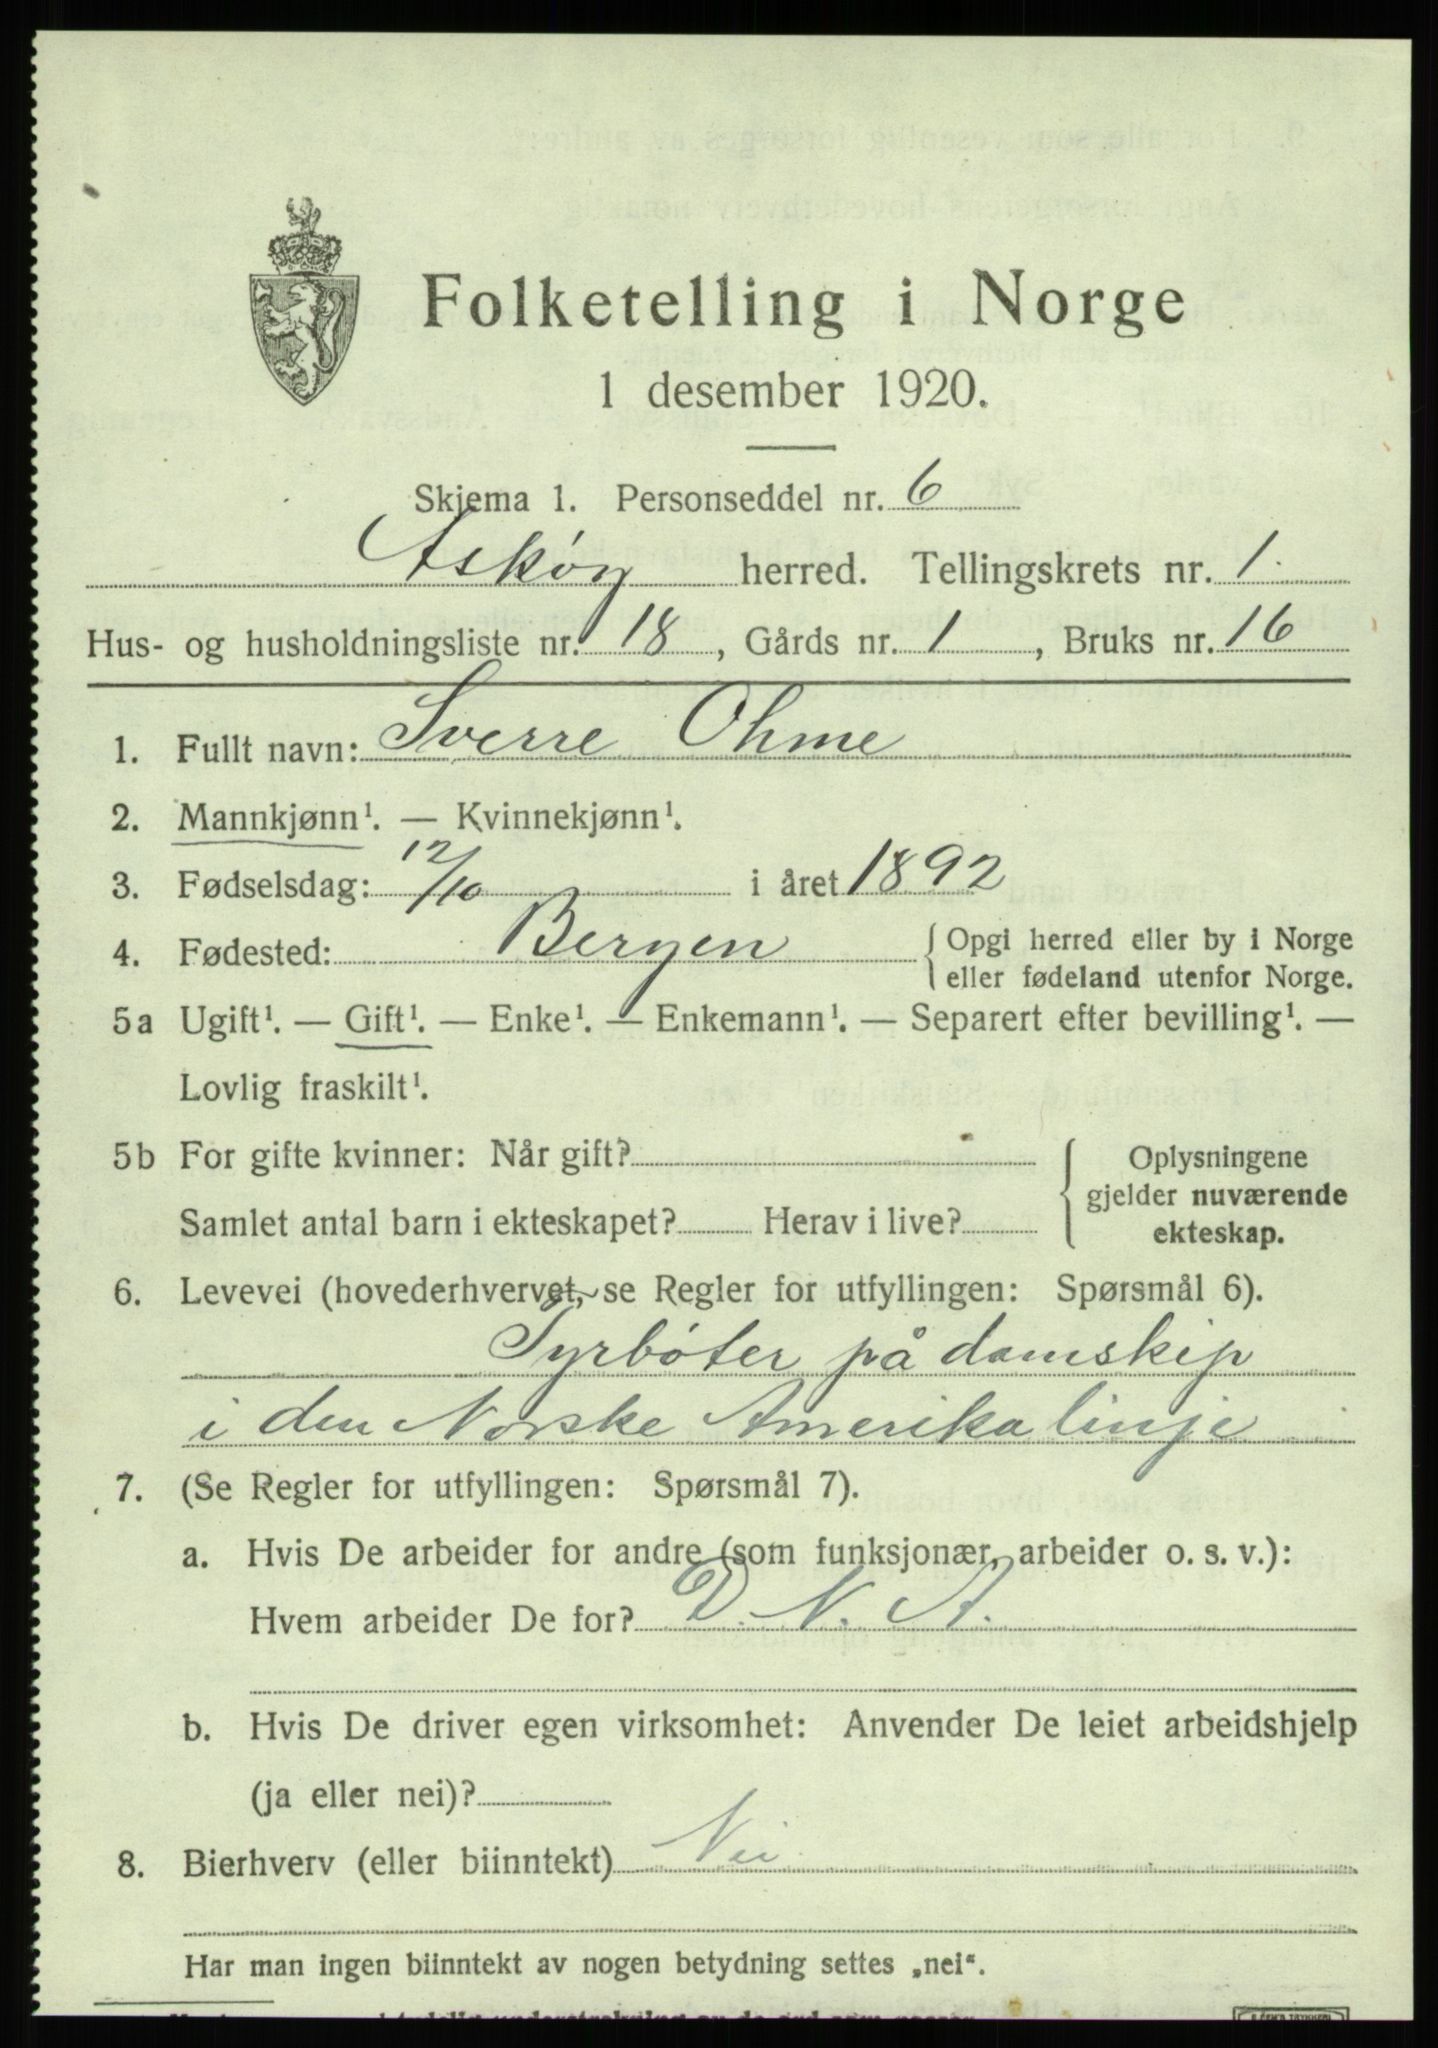 Folketelling i Norge
1 desember 1920.
Skjema 1. Personseddel nr. 6
Askøy herred. Tellingskrets nr. 1.
Hus- og husholdningsliste nr. 18, Gårds nr. 1, Bruks nr. 16
1. Fullt navn: Sverre Ohme
2. Mannkjønn¹. — Kvinnekjønn¹.
3. Fødselsdag: 12/10 i året 1892
4. Fødested: Bergen { Opgi herred eller by i Norge
eller fødeland utenfor Norge.
5a Ugift¹. — Gift¹. — Enke¹. — Enkemann¹. — Separert efter bevilling¹. —
Lovlig fraskilt¹.
5b For gifte kvinner: Når gift?
Samlet antal barn i ekteskapet? Herav i live?
{ Oplysningene
gjelder nuværende
ekteskap.
6. Levevei (hovederhvervet, se Regler for utfyllingen: Spørsmål 6).
Fyrbøter på damskip
i den Norske Amerika linje
7. (Se Regler for utfyllingen: Spørsmål 7).
a. Hvis De arbeider for andre (som funksjonær, arbeider o. s. v.):
Hvem arbeider De for? D. N. A.
b. Hvis De driver egen virksomhet: Anvender De leiet arbeidshjelp
(ja eller nei)?
8. Bierhverv (eller biinntekt) Nei
Har man ingen biinntekt av nogen betydning settes „nei“.